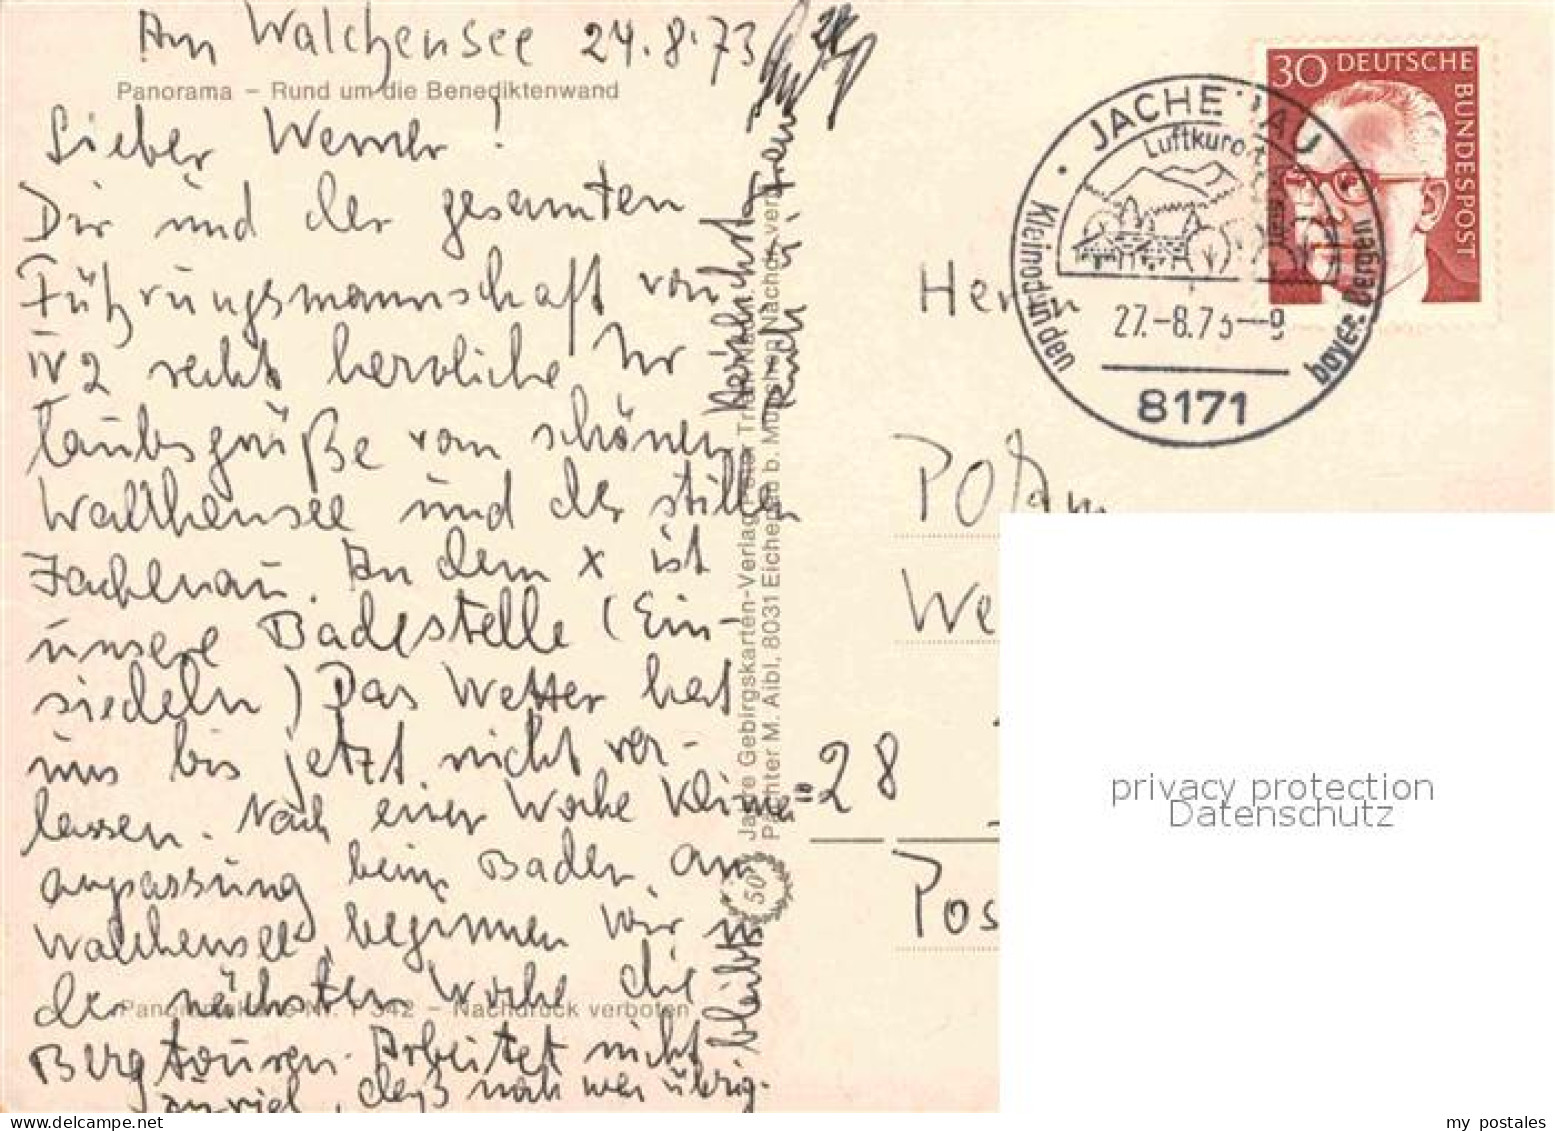 Am Walchensee 24.8.73
Panorama – Rund um die Benediktenwand
Lieber Werner!
Dir und der gesamten
Führungsmannschaft von
IV 2 recht herzliche Ur
laubsgrüße vom schönen
Walchensee und der stillen
Jachenau. An dem x ist
unsere Badestelle (Ein-
siedeln) Das Wetter hat
uns bis jetzt nicht ver-
lassen. Nach einer Woche Klima
anpassung beim Baden am
Walchensee, beginnen wir in
der nächsten Woche die
Bergtouren. Arbeitet nicht
zuviel, daß noch was übrig-
bleibt
Panoramakarte Nr. P 342 – Nachdruck verboten
Gebirgskarten-Verlag
Pächter M. Aibl, 8031 Eichenau b. München
50
30 DEUTSCHE
BUNDESPOST
JACHENAU
Luftkurort
Kleinod in den
bayer. Bergen
27.-8.73--9
8171
Herrn
We
28
Pos
privacy protection
Datenschutz
my postales